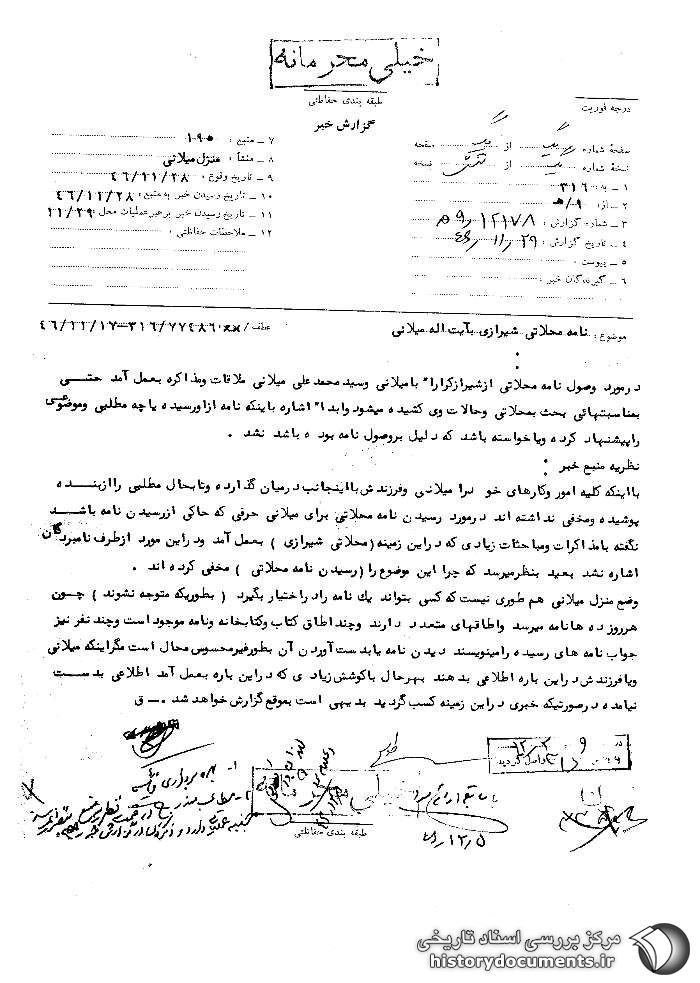 خیلی محرمانه
طبقه بندی حفاظتی
گزارش خبر
درجه فوریت
صفحهٔ شماره یک از یک صفحه
نسخهٔ شماره یک از نسخه
۱ ـ به: ۳۱۶
۲ ـ از: ۹/ه
۳ ـ شماره گزارش: ۹/۱۲۱۷۸ ه
۴ ـ تاریخ گزارش: ۴۶/۱۱/۲۹
۵ ـ پیوست:
۶ ـ گیرندگان خبر:
۷ ـ منبع: ۱۹۰
۸ ـ منشأ: منزل میلانی
۹ ـ تاریخ وقوع: ۴۶/۱۱/۲۸
۱۰ ـ تاریخ رسیدن خبر به منبع: ۴۶/۱۱/۲۸
۱۱ ـ تاریخ رسیدن خبر برهبر عملیات محل: ۱۱/۲۹
۱۲ ـ ملاحظات حفاظتی:
موضوع: نامه محلاتی شیرازی بآیت اله میلانی
عطف/ ۳۱۶/۷۷۴۸۶–۴۶/۱۱/۱۷
درمورد وصول نامه محلاتی ازشیرازکرارا" بامیلانی وسید محمد علی میلانی ملاقات ومذاکره بعمل آمد حتی
بمناسبتهائی بحث بمحلاتی وحالات وی کشیده میشود وابدا" اشاره باینکه نامه ازاو رسیده یاچه مطلبی وموضوعی
راپیشنهاد کرده ویاخواسته باشد که دلیل بروصول نامه بوده باشد نشد .
نظریه منبع خبر :
بااینکه کلیه امور وکارهای خودرا میلانی وفرزندش بااینجانب درمیان گذارده وتابحال مطلبی راازبنده
پوشیده ومخفی نداشته اند درمورد رسیدن نامه محلاتی برای میلانی حرفی که حاکی ازرسیدن نامه باشد
نگفته بامذاکرات ومباحثات زیادی که دراین زمینه (محلاتی شیرازی ) بعمل آمد ودراین مورد ازطرف نامبردگان
اشاره نشد بعید بنظرمیرسد که چرا این موضوع را (رسیدن نامه محلاتی ) مخفی کرده اند .
وضع منزل میلانی هم طوری نیست که کسی بتواند یك نامه رادراختیار بگیرد ( بطوریکه متوجه نشوند ) چون
هرروز ده هانامه میرسد واطاقهای متعدد دارند وچند اطاق کتاب وکتابخانه ونامه موجود است وچند نفر نیز
جواب نامه های رسیده رامینویسند دیدن نامه یابدست آوردن آن بطورغیرمحسوس محال است مگراینکه میلانی
ویافرزندش دراین باره اطلاعی بدهند بهرحال باکوشش زیادی که دراین باره بعمل آمد اطلاعی بدست
نیامده درصورتیکه خبری دراین زمینه کسب گردید بدیهی است بموقع گزارش خواهد شد . ـ ق
طبقه بندی حفاظتی
۴۶/۱۲/۵
مرکز بررسی اسناد تاریخی
historydocuments.ir